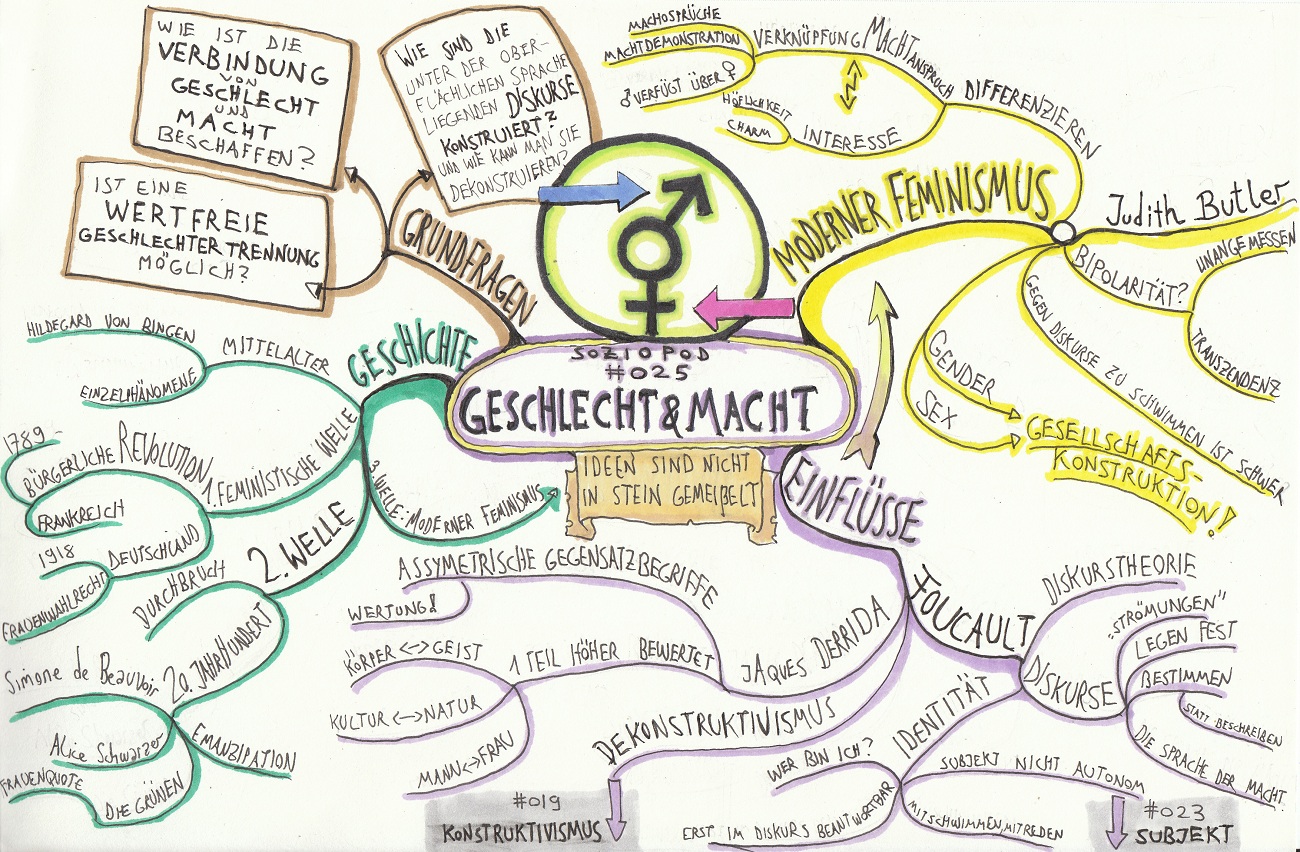 WIE IST DIE
VERBINDUNG
VON
GESCHLECHT
UND
MACHT
BESCHAFFEN?
WIE SIND DIE
UNTER DER OBER-
FLÄCHLICHEN SPRACHE
LIEGENDEN DISKURSE
KONSTRUIERT?
UND WIE KANN MAN SIE
DEKONSTRUIEREN?
IST EINE
WERTFREIE
GESCHLECHTERTRENNUNG
MÖGLICH?
GRUNDFRAGEN
SOZIOPOD
#025
GESCHLECHT&MACHT
IDEEN SIND NICHT
IN STEIN GEMEIßELT
MODERNER FEMINISMUS
DIFFERENZIEREN
VERKNÜPFUNG MACHTANSPRUCH
MACHOSPRÜCHE
MACHTDEMONSTRATION
♂ VERFÜGT ÜBER ♀
INTERESSE
HÖFLICHKEIT
CHARM
Judith Butler
BIPOLARITÄT?
UNANGEMESSEN
TRANSZENDENZ
GEGEN DISKURSE ZU SCHWIMMEN IST SCHWER
GENDER
SEX
GESELLSCHAFTS-
KONSTRUKTION!
GESCHICHTE
MITTELALTER
HILDEGARD VON BINGEN
EINZELPHÄNOMENE
1. FEMINISTISCHE WELLE
1789-
BÜRGERLICHE REVOLUTION
FRANKREICH
DEUTSCHLAND
1918
FRAUENWAHLRECHT
2. WELLE
DURCHBRUCH
20. JAHRHUNDERT
Simone de Beauvoir
Alice Schwarzer
EMANZIPATION
DIE GRÜNEN
FRAUENQUOTE
3. WELLE: MODERNER FEMINISMUS
EINFLÜSSE
JAQUES DERRIDA
ASSYMETRISCHE GEGENSATZBEGRIFFE
WERTUNG!
1 TEIL HÖHER BEWERTET
KÖRPER <-> GEIST
KULTUR <-> NATUR
MANN <-> FRAU
DEKONSTRUKTIVISMUS
#019
KONSTRUKTIVISMUS
FOUCAULT
DISKURSE
DISKURSTHEORIE
"STRÖMUNGEN"
LEGEN FEST
BESTIMMEN
STATT BESCHREIBEN
DIE SPRACHE DER MACHT
IDENTITÄT
WER BIN ICH?
ERST IM DISKURS BEANTWORTBAR
SUBJEKT NICHT AUTONOM
MITSCHWIMMEN, MITREDEN
#023
SUBJEKT